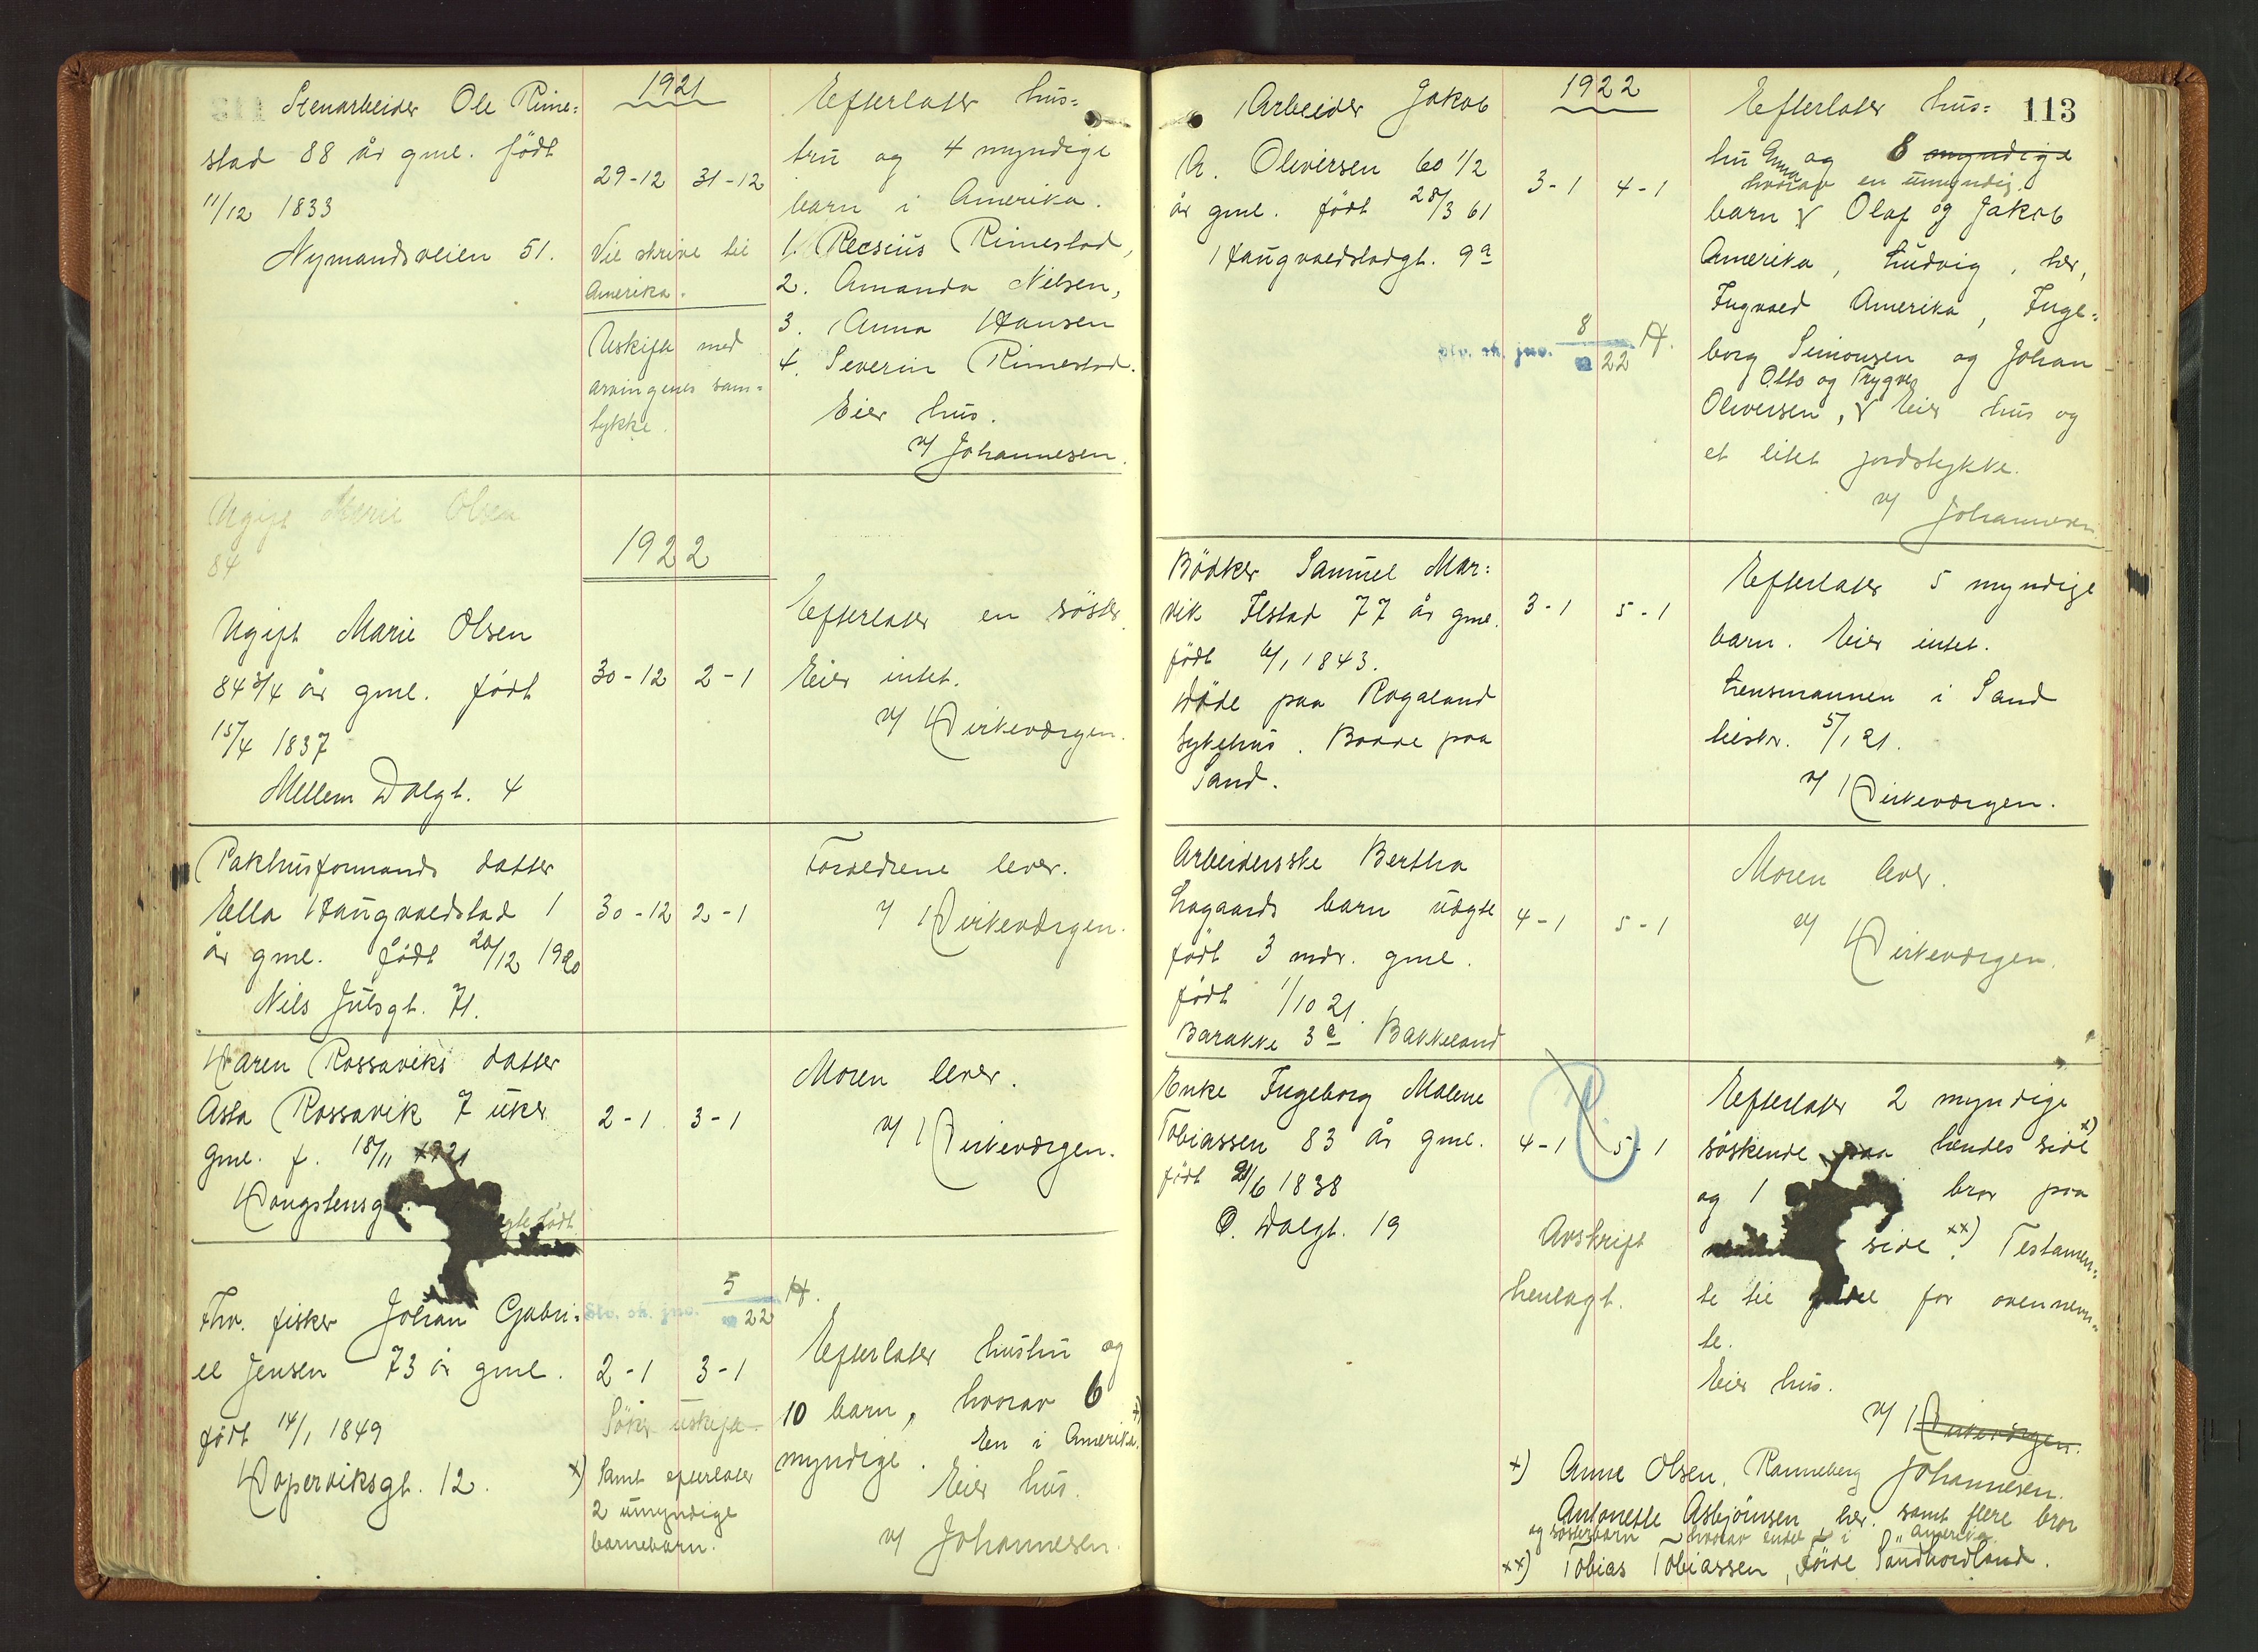 1921
Stenarbeider Ole Rime=
stad 88 år gml. født
11/12 1833
Nymandsveien 51.
29-12 31-12
Vil skrive til
Amerika.
Uskifte med
arvingenes sam=
tykke.
Efterlater hus=
tru og 4 myndige
barn i Amerika.
1. Recsius Rimestad,
2. Amanda Nilsen,
3. Anna Hansen
4. Severin Rimestad.
Eier hus.
v/ Johannesen.
Ugift Marie Olsen
84
1922
Ugift Marie Olsen
84 3/4 år gml. født
15/4 1837
Mellem Dalgt. 4
30-12 2-1
Efterlater en søster.
Eier intet.
v/ Kirkeværgen.
Pakhusformands datter
Ella Haugvaldstad 1
år gml. født 20/12 1920
Nils Julsgt. 71.
30-12 2-1
Forældrene lever.
v/ Kirkeværgen.
Karen Rossaviks datter
Asta Rossavik 7 uker
gml. f. 18/11 1921
Kongstensg
født
2-1 3-1
Moren lever.
v/ Kirkeværgen.
Fhv. fisker Johan Gabri=
el Jensen 73 år gml.
født 14/1 1849
Koperviksgt. 12.
Slv. sk. jno. 5/22 H.
2-1 3-1
Søker uskifte
x) Samt efterlater
2 umyndige
barnebarn.
Efterlater hustru og
10 barn, hvorav 6 x)
myndige. En i Amerika.
Eier hus.
v/ Johannesen.
113
1922
Arbeider Jakob
A. Oliversen 60 1/2
år gml. født 28/3 61
Haugvaldstadgt. 9a
3-1 4-1
Slv. sk. jno. 8/22 H.
Efterlater hus=
tru Enna og 8 myndige
hvorav en umyndig.
barn V Olaf og Jakob
Amerika, Ludvig, her,
Ingvald Amerika, Inge=
borg Simonsen og Johan
Otto og Trygve
Oliversen, V Eier hus og
et litet jordstykke.
v/ Johannesen
Bødker Samuel Mar=
vik Ilstad 77 år gml.
født 6/1 1843.
Døde paa Rogaland
sykehus. Bodde paa
Sand.
3-1 5-1
Efterlater 5 myndige
barn. Eier intet.
Lensmannen i Sand
tilskr. 5/1 21.
v/ Kirkeværgen.
Arbeiderske Bertha
Lagaards barn uægte
født 3 mdr. gml.
født 1/10 21.
Barakke 3a Bakkeland
4-1 5-1
Moren lever.
v/ Kirkeværgen.
Enke Ingeborg Malene
Tobiassen 83 år gml.
født 21/6 1838
Ø. Dalgt. 19
4-1 5-1
Avskrift
henlagt.
Efterlater 2 myndige
søskende paa hendes side x)
og 1 bror paa
side xx). Testamen=
te til fordel for ovennevn=
te.
Eier hus.
v/ Kirkeværgen.
Johannesen.
x) Anne Olsen, Ranneberg
Antonette Asbjørnsen her. samt flere bror
og søsterbarn hvorav endel i Amerika
xx) Tobias Tobiassen, Førde Søndhordland.